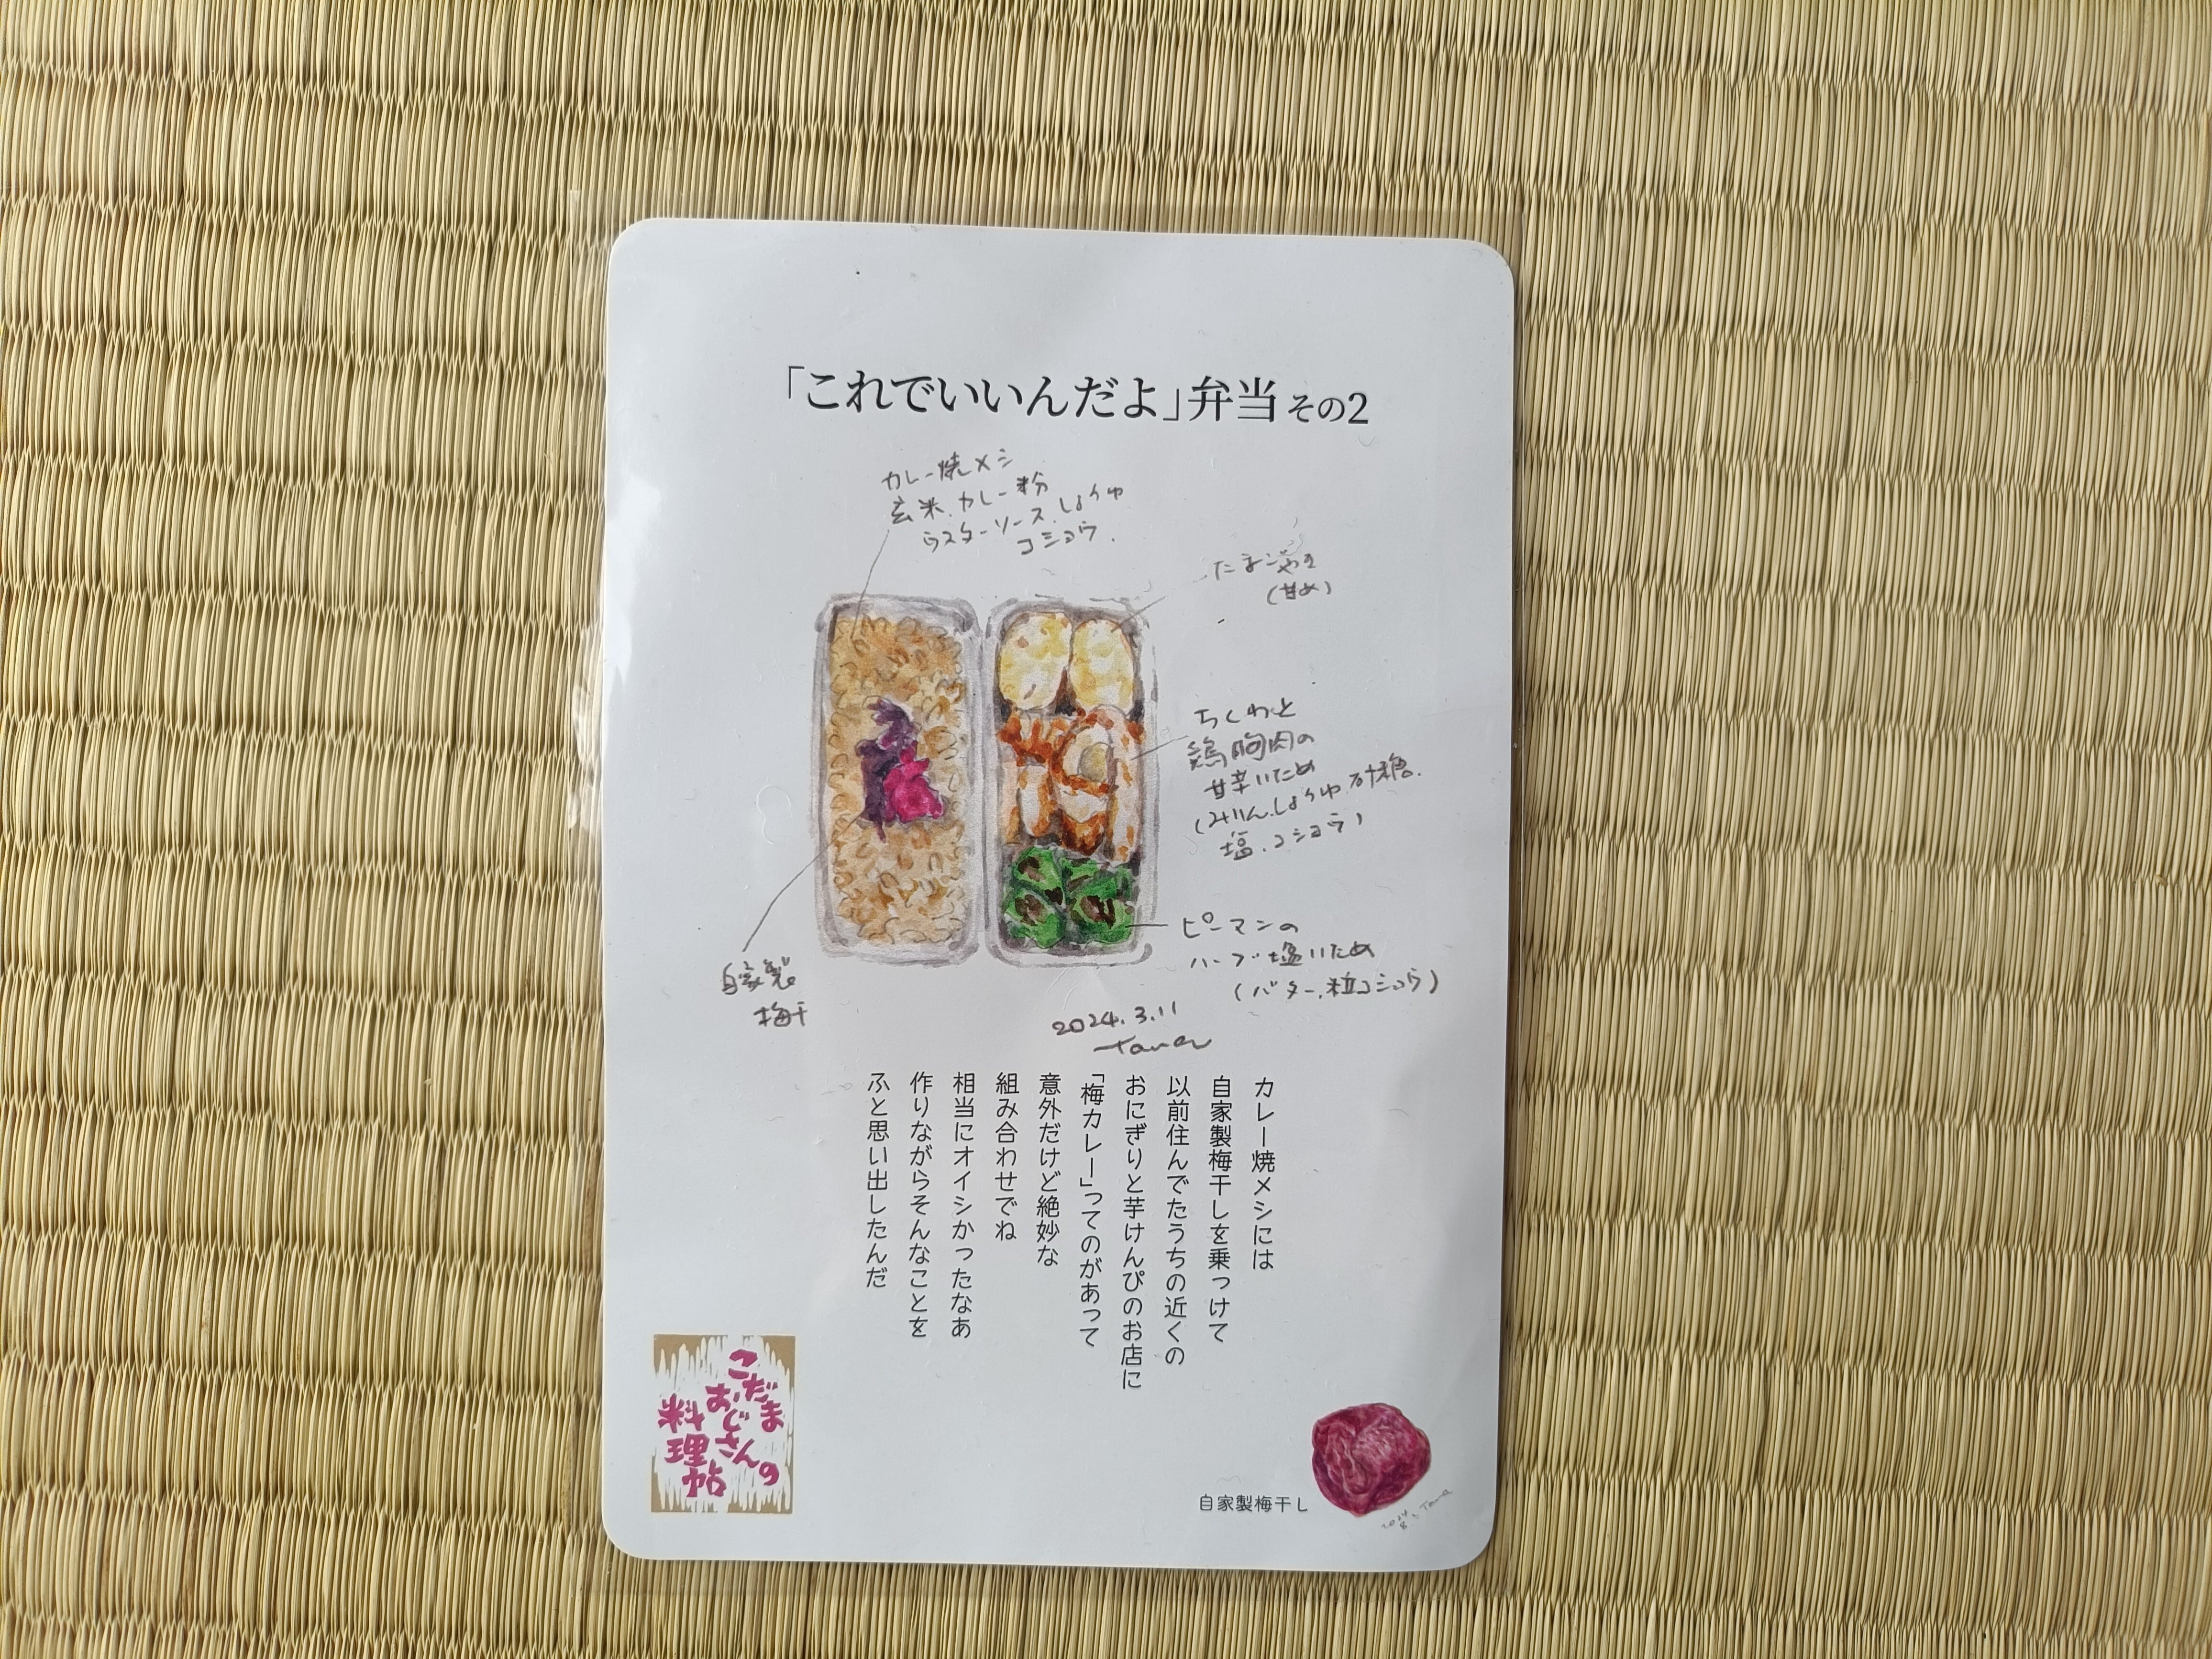 「これでいいんだよ」弁当 その2
カレー焼メシ
玄米.カレー粉
ウスターソース.しょうゆ
コショウ.
たまごやき
(甘め)
ちくわと
鶏胸肉の
甘辛いため
(みりん.しょうゆ.砂糖.
塩.コショウ)
ピーマンの
ハーブ塩いため
(バター.粒コショウ)
自家製
梅干
2024.3.11
カレー焼メシには
自家製梅干しを乗っけて
以前住んでたうちの近くの
おにぎりと芋けんぴのお店に
「梅カレー」ってのがあって
意外だけど絶妙な
組み合わせでね
相当にオイシかったなあ
作りながらそんなことを
ふと思い出したんだ
こだま
おじさんの
料理帖
自家製梅干し